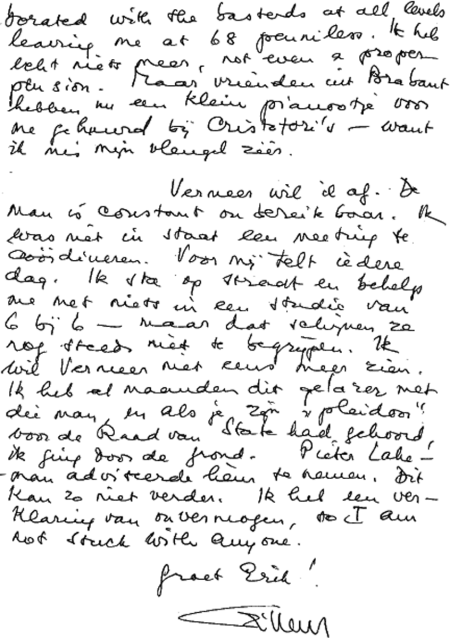 borated with the basterds at all levels
leaving me at 68 penniless. Ik heb
echt niets meer, not even a proper
pension. Maar vrienden uit Brabant
hebben nu een klein pianootje voor
me gehuurd bij Cristofori's – want
ik mis mijn vleugel zéér.
Vermeer wil ik af. De
man is constant onbereikbaar. Ik
was niet in staat een meeting te
coördineren. Voor mij telt iedere
dag. Ik sta op straat en behelp
me met niets in een studio van
6 bij 6 – maar dat schijnen ze
nog steeds niet te begrijpen. Ik
wil Vermeer niet eens meer zien.
Ik heb al maanden dit gelazer met
die man, en als je zijn "pleidooi"
voor de Raad van State had gehoord,
ik ging door de grond. Pieter Lake-
man adviseerde hem te nemen. Dit
kan zo niet verder. Ik heb een ver-
klaring van onvermogen, so I am
not stuck with anyone.
Groet Erik!